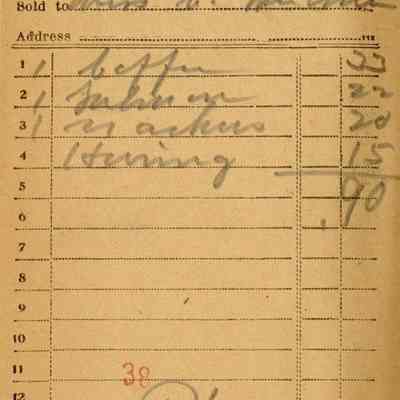 Sold to Miss
Address
1 1 Coffee 33
2 1 Salmon 22
3 1 20
4 Herring 15
5 .90
6
7
8
9
10
11 38
12